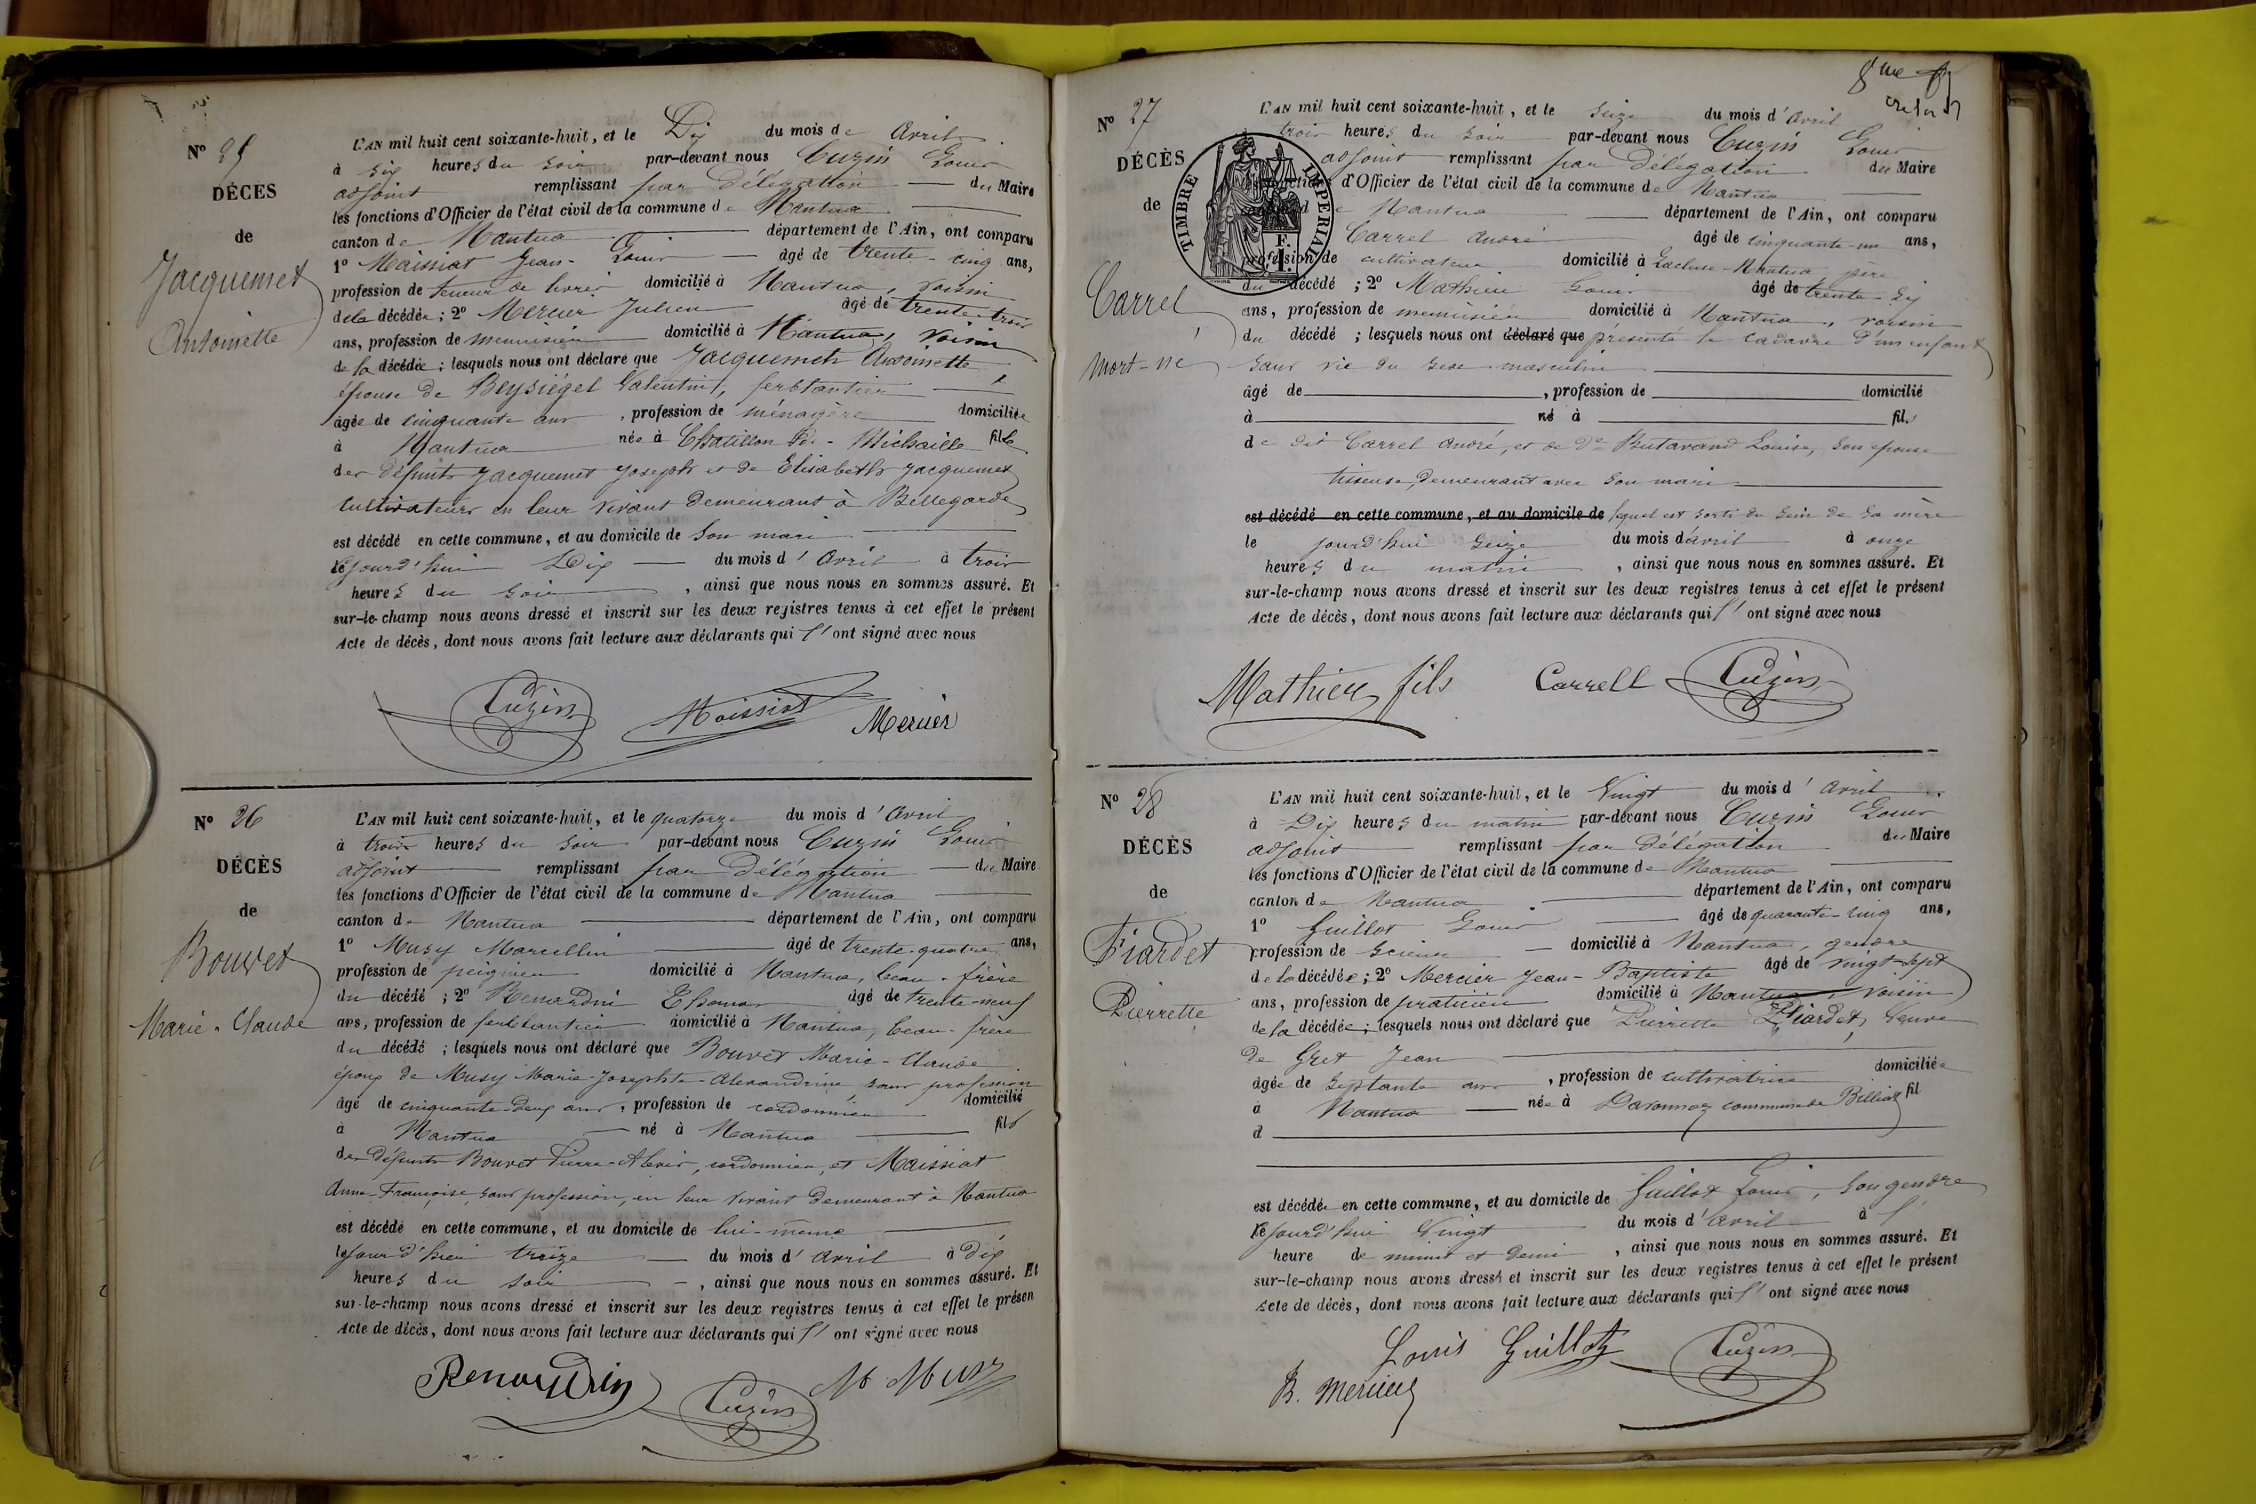 N° 25
DÉCÈS
de
Jacquemet
Antoinette
L'AN mil huit cent soixante-huit, et le Dix du mois de Avril
à six heures du soir par-devant nous Cuzin Louis
adjoint remplissant par Délégation du Maire
les fonctions d'Officier de l'état civil de la commune de Nantua
canton de Nantua département de l'Ain, ont comparu
1° Maissiat Jean-Louis âgé de trente-cinq ans,
profession de teneur de livres domicilié à Nantua, voisin
de la décédée; 2° Mercier Julien âgé de trente-trois
ans, profession de menuisier domicilié à Nantua, voisin
de la décédée; lesquels nous ont déclaré que Jacquemet Antoinette
épouse de Beysiégel Valentin, ferblantier
âgée de cinquante ans, profession de ménagère domiciliée
à Nantua née à Chatillon de-Michaille fille
des défunts Jacquemet Joseph et de Elisabeth Jacquemet
cultivateurs en leur vivant demeurant à Bellegarde
est décédé en cette commune, et au domicile de son mari
le jourd'hui Dix du mois d'Avril à trois
heures du soir, ainsi que nous nous en sommes assuré. Et
sur-le-champ nous avons dressé et inscrit sur les deux registres tenus à cet effet le présent
Acte de décès, dont nous avons fait lecture aux déclarants qui l'ont signé avec nous
Cuzin Maissiat Mercier
N° 26
DÉCÈS
de
Bouvet
Marie-Claude
L'AN mil huit cent soixante-huit, et le quatorze du mois d'Avril
à trois heures du soir par-devant nous Cuzin Louis
adjoint remplissant par Délégation du Maire
les fonctions d'Officier de l'état civil de la commune de Nantua
canton de Nantua département de l'Ain, ont comparu
1° Musy Marcellin âgé de trente-quatre ans,
profession de peigneur domicilié à Nantua, beau-frère
du décédé; 2° Thomas âgé de trente-neuf
ans, profession de ferblantier domicilié à Nantua, beau-frère
du décédé; lesquels nous ont déclaré que Bouvet Marie-Claude
époux de Musy Marie-Josephte-Alexandrine, sans profession
âgé de cinquante-deux ans, profession de cordonnier domicilié
à Nantua né à Nantua fils
des défunts Bouvet Pierre-Alexis, cordonnier, et Maissiat
Anne-Françoise, sans profession, en leur vivant demeurant à Nantua
est décédé en cette commune, et au domicile de lui-même
le jour d'hier treize du mois d'Avril à dix
heures du soir, ainsi que nous nous en sommes assuré. Et
sur-le-champ nous avons dressé et inscrit sur les deux registres tenus à cet effet le présen
Acte de décès, dont nous avons fait lecture aux déclarants qui l'ont signé avec nous
Cuzin M Musy
8me
N° 27
DÉCÈS
de
Carrel
mort-né
TIMBRE IMPERIAL
L'AN mil huit cent soixante-huit, et le seize du mois d'Avril
trois heures du soir par-devant nous Cuzin Louis
adjoint remplissant par Délégation du Maire
fonctions d'Officier de l'état civil de la commune de Nantua
de Nantua département de l'Ain, ont comparu
Carrel André âgé de cinquante-un ans,
profession de cultivateur domicilié à Lacluse-Nantua père
du décédé; 2° Mathieu Louis âgé de trente-six
ans, profession de menuisier domicilié à Nantua, voisin
du décédé; lesquels nous ont déclaré que présenté le cadavre d'un enfant
sans vie du sexe masculin
âgé de, profession de domicilié
à né à fils
de dit Carrel André, et de De Butavand Louise, son épouse
tisseuse, demeurant avec son mari
est décédé en cette commune, et au domicile de lequel est sorti du sein de sa mère
le jourd'hui seize du mois d'avril à onze
heures du matin, ainsi que nous nous en sommes assuré. Et
sur-le-champ nous avons dressé et inscrit sur les deux registres tenus à cet effet le présent
Acte de décès, dont nous avons fait lecture aux déclarants qui l'ont signé avec nous
Mathieu fils Carrell Cuzin
N° 28
DÉCÈS
de
Fiardet
Pierrette
L'AN mil huit cent soixante-huit, et le Vingt du mois d'Avril
à Dix heures du matin par-devant nous Cuzin Louis
adjoint remplissant par Délégation du Maire
les fonctions d'Officier de l'état civil de la commune de Nantua
canton de Nantua département de l'Ain, ont comparu
1° Guillot Louis âgé de quarante-cinq ans,
profession de scieur domicilié à Nantua, gendre
de la décédée; 2° Mercier Jean-Baptiste âgé de vingt-sept
ans, profession de praticien domicilié à Nantua, voisin
de la décédée; lesquels nous ont déclaré que Pierrette Fiardet, veuve
de Gret Jean
âgée de septante ans, profession de cultivatrice domiciliée
à Nantua née à commune de Billiat fil
d
est décédée en cette commune, et au domicile de Guillot Louis, son gendre
le jourd'hui Vingt du mois d'avril à l'
heure de minuit et demi, ainsi que nous nous en sommes assuré. Et
sur-le-champ nous avons dressé et inscrit sur les deux registres tenus à cet effet le présent
Acte de décès, dont nous avons fait lecture aux déclarants qui l'ont signé avec nous
Louis Guillot Cuzin
B. Mercier